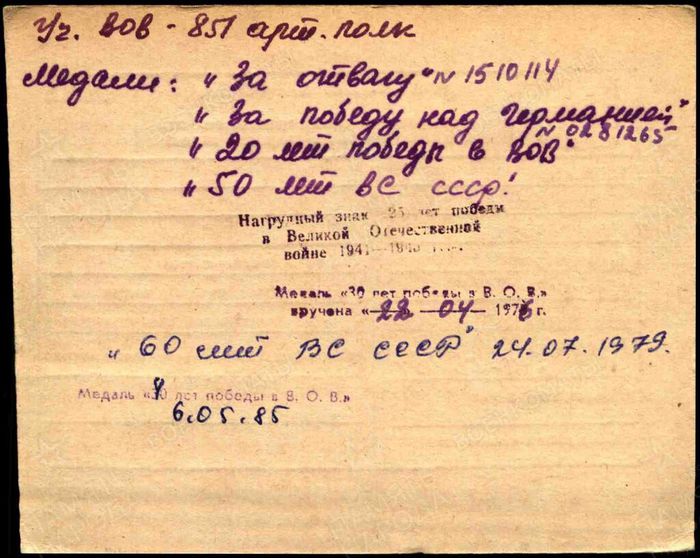 Уч. ВОВ - 851 арт. полк
Медали: "За отвагу" N 1510114
"За победу над Германией"
N 0281265
"20 лет победы в ВОВ"
"50 лет ВС СССР"
Нагрудный знак 25 лет победы
в Великой Отечественной
войне 1941—1945
Медаль «30 лет победы в В. О. В.»
вручена «22 04 1976 г.
"60 лет ВС СССР" 24.07.1979.
Медаль «40 лет победы в В. О. В.»
6.05.85